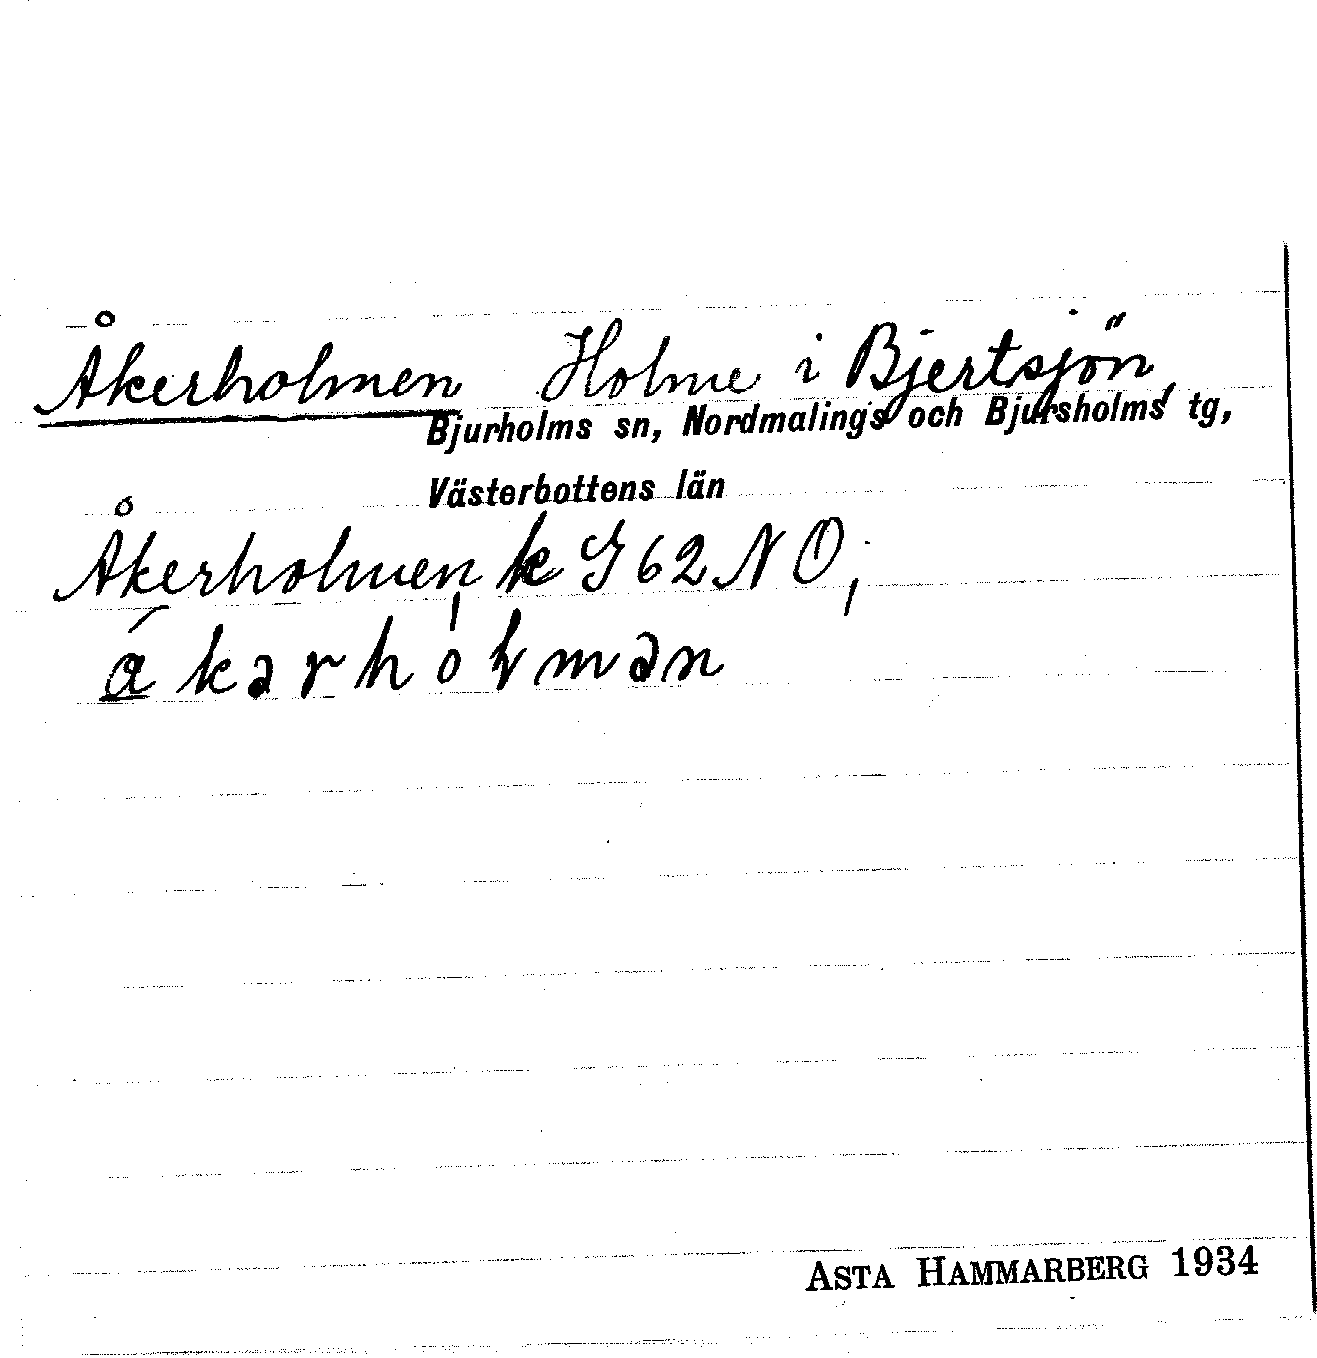 Åkerholmen Holme i Bjertsjön,
Bjurholms sn, Nordmalings och Bjursholms tg,
Västerbottens län
Åkerholmen k G 62 NO;
ASTA HAMMARBERG 1934